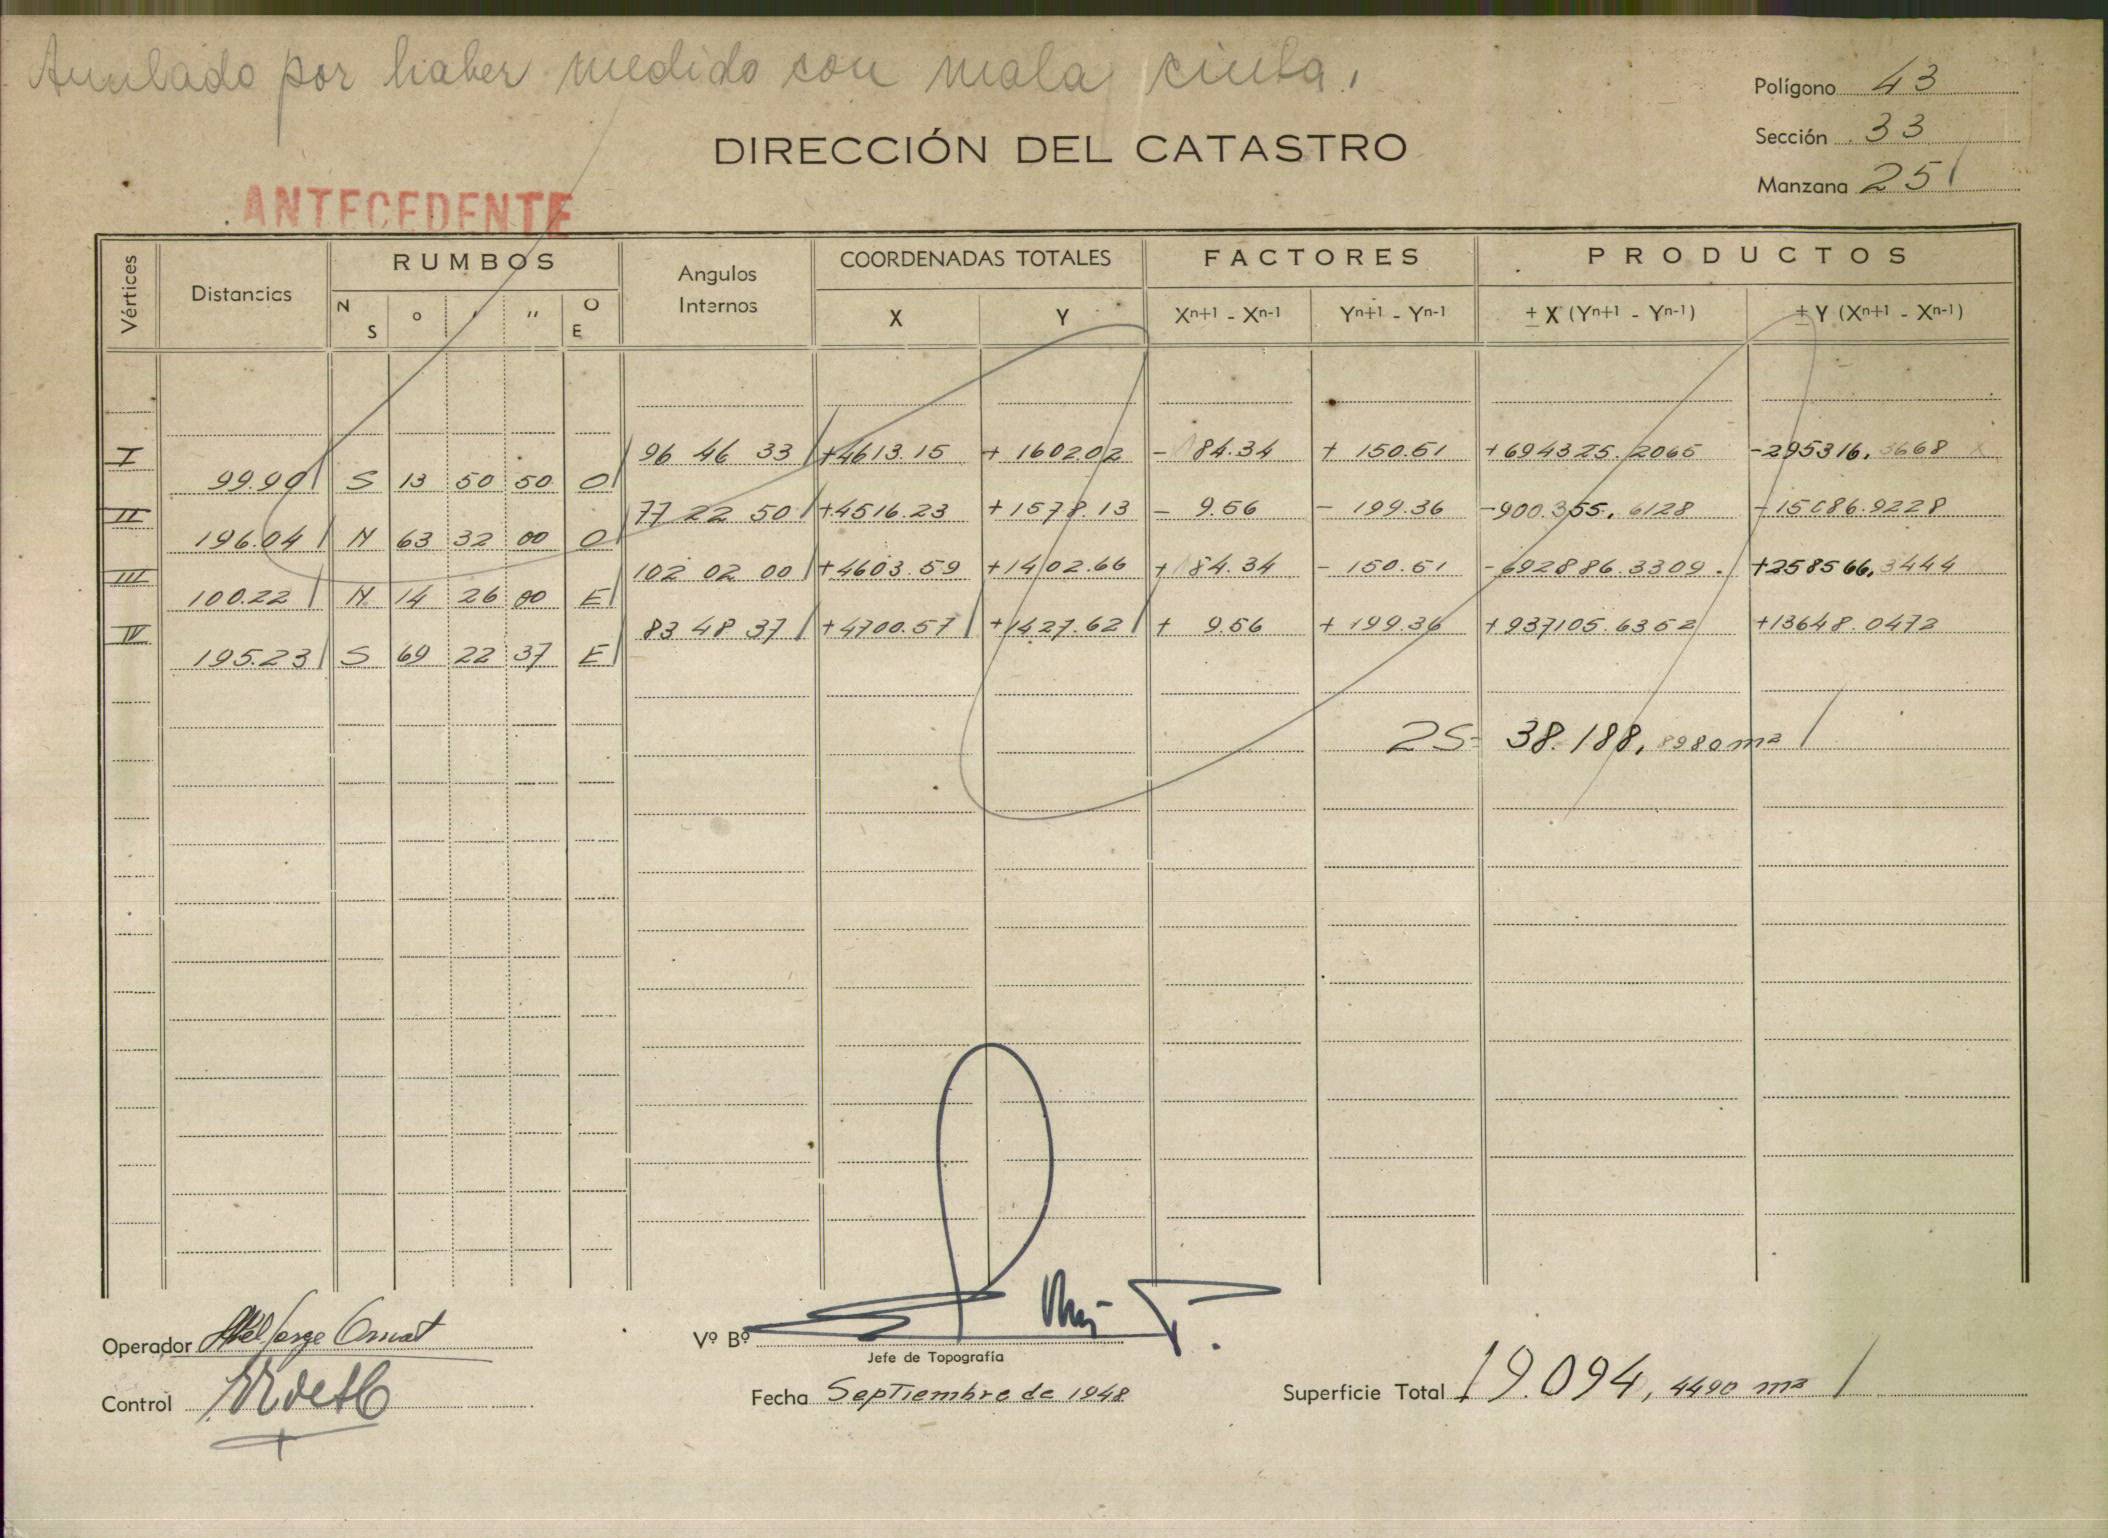 Anulado por haber medido con mala cinta.
Polígono 43
Sección 33
Manzana 251
DIRECCIÓN DEL CATASTRO
ANTECEDENTE
Vértices Distancias RUMBOS Angulos Internos COORDENADAS TOTALES FACTORES PRODUCTOS
N S ° ' " O E X Y Xn+1 - Xn-1 Yn+1 - Yn-1 ± X (Yn+1 - Yn-1) ± Y (Xn+1 - Xn-1)
I 96 46 33 +4613.15 + 1602.02 - 184.34 + 150.51 +694325.2065 -295316.3668
99.90 S 13 50 50 O
II 77 22 50 +4516.23 +1578.13 - 9.56 - 199.36 -900.355.6128 -15086.9228
196.04 N 63 32 00 O
III 102 02 00 +4603.59 +1402.66 + 184.34 - 150.51 -692886.3309 +258566.3444
100.22 N 14 26 00 E
IV 83 48 37 +4700.57 +1427.62 + 9.56 + 199.36 +937105.6352 +13648.0472
195.23 S 69 22 37 E
2S= 38.188,8980 m2
Operador Abel Jorge
Vº Bº
Jefe de Topografía
Control
Fecha Septiembre de 1948
Superficie Total 19.094,4490 m2